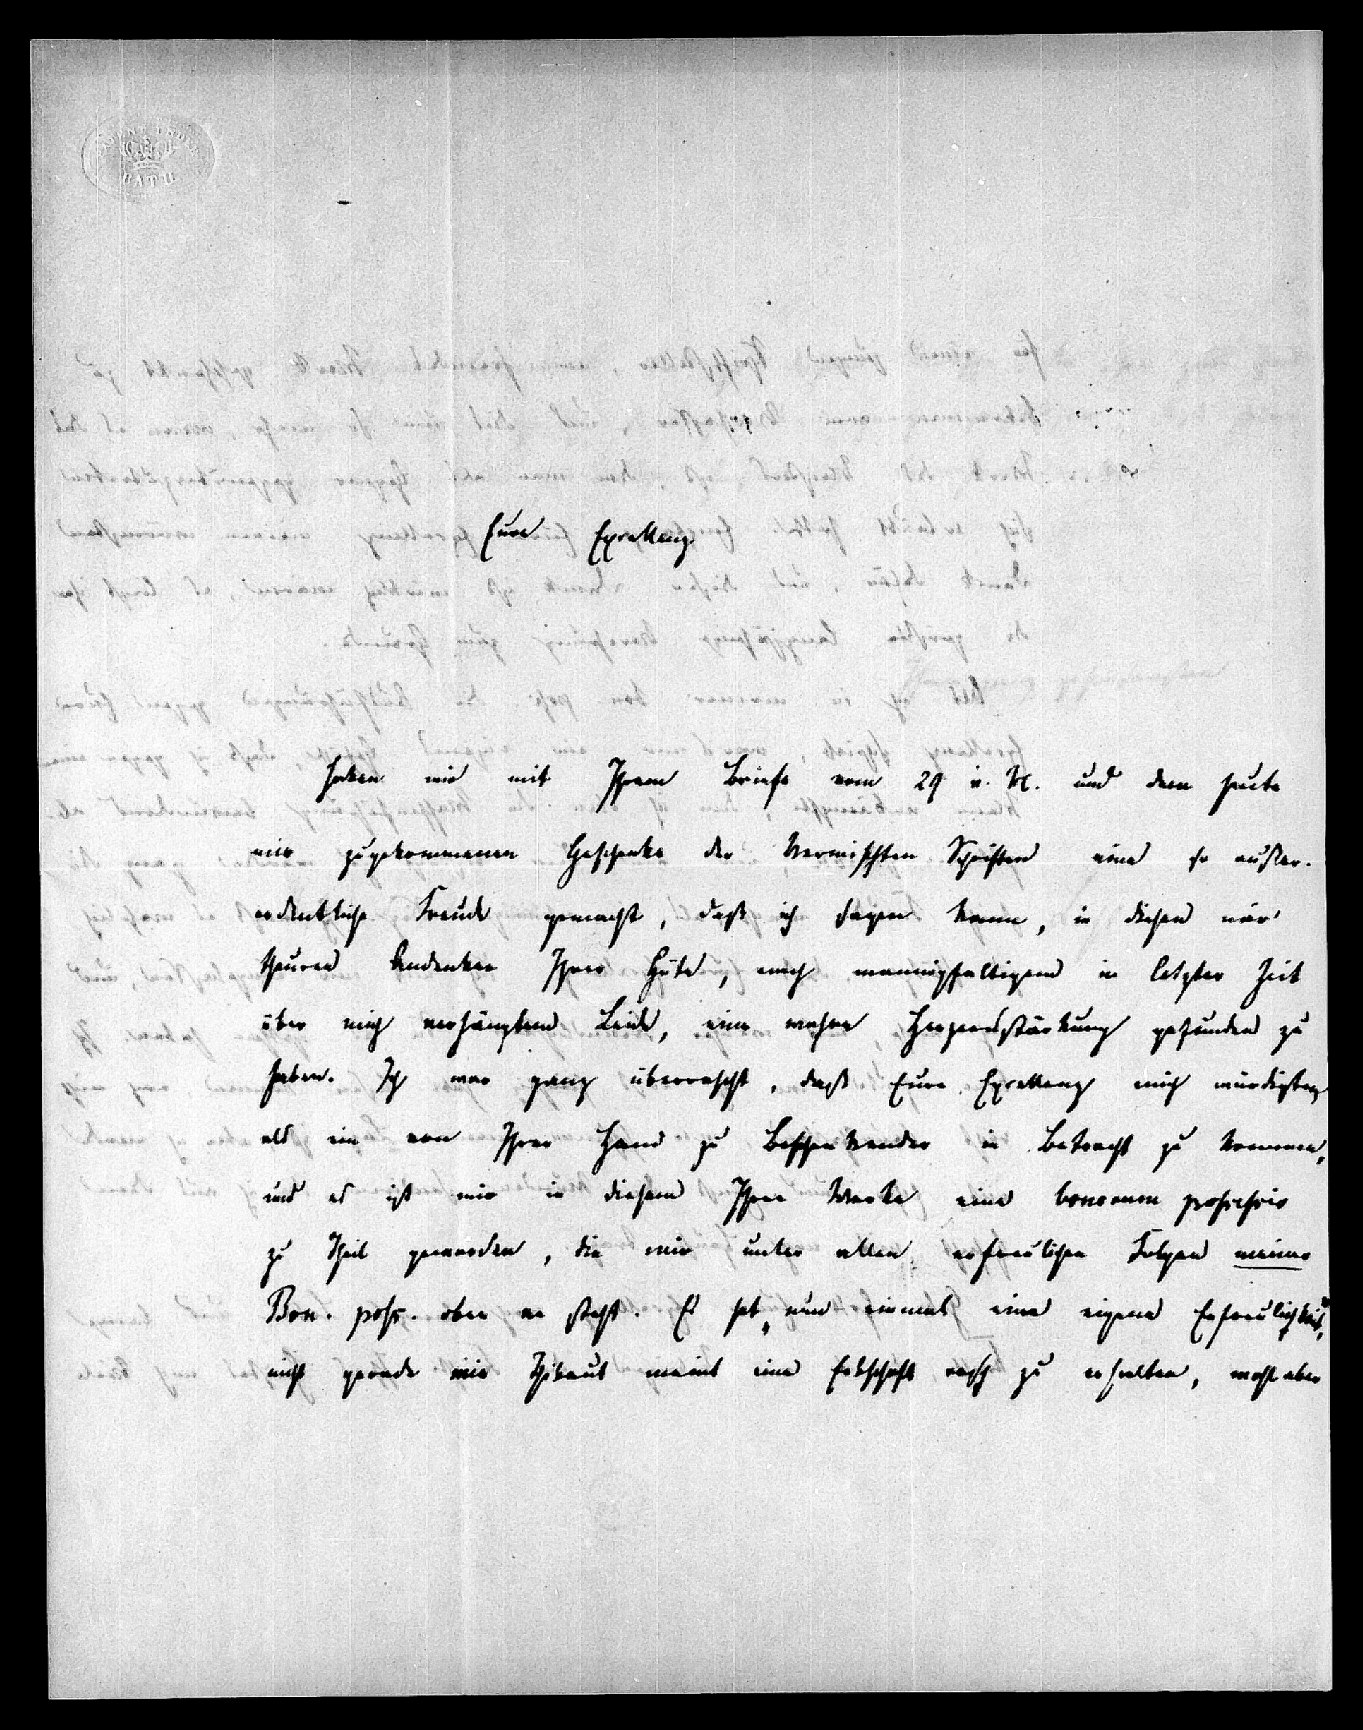 Eure Excellenz
haben mir mit Ihrem Briefe vom 29 v. M. und dem heute
mir zugekommenen Geschenke der Vermischten Schriften eine so außer-
ordentliche Freude gemacht, daß ich sagen kann, in diesen mir
theuren Andenken Ihrer Güte, nach mannigfaltigem in letzter Zeit
über mich verhängtem Leide, eine wahre Herzensstärkung gefunden zu
haben. Ich war ganz überrascht, daß Eure Excellenz mich würdigten,
als ein von Ihrer Hand zu Beschenkender in Betracht zu kommen,
und es ist mir in diesem Ihrem Werke eine bonorum possessio
zu Theil geworden, die mir unter allen erfreulichen Folgen meiner
Bon. poss. oben an steht. Es hat nun einmal eine eigene Erfreulichkeit,
nicht gerade wie Thibaut meint eine Erbschaft rasch zu erhalten, wohl aber